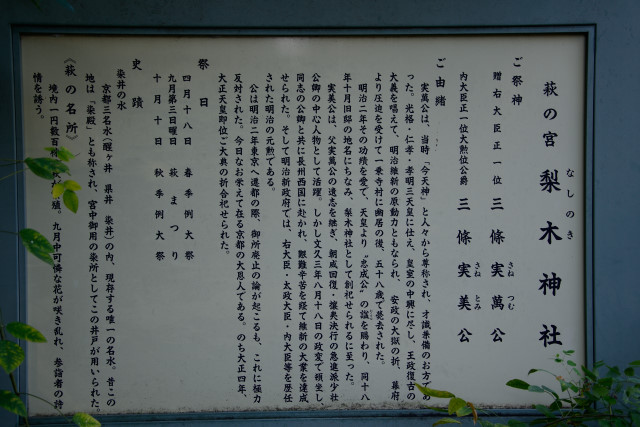 萩の宮 梨木神社
なしのき
ご祭神
贈右大臣正一位 三條実萬公
さね つむ
内大臣正一位大勲位公爵 三條実美公
さね とみ
ご由緒
実萬公は、当時「今天神」と人々から尊称され、才識兼備のお方であ
った。光格・仁孝・孝明三天皇に仕え、皇室の中興に尽し、王政復古の
大義を唱えて、明治維新の原動力ともなられ、安政の大獄の折、幕府
より圧迫を受けて一乗寺村に幽居の後、五十八歳で薨去された。
明治二年その功績を愛て、天皇より“忠成公”の諡を賜わり、同十八
年十月旧邸の地名にちなみ、梨木神社として創祀せられるに至った。
実美公は、父実萬公の遺志を継ぎ、朝威回復・攘夷決行の急進派少壮
公卿の中心人物として活躍。しかし文久三年八月十八日の政変で頓坐し、
同志の公卿と共に長州西国に赴かれ、艱難辛苦を経て維新の大業を達成
せられた。そして明治新政府では、右大臣・太政大臣・内大臣等を歴任
された明治の元勲である。
公は明治二年東京へ遷都の際、御所廃止の論が起こるも、これに極力
反対された。今日なお栄えて在る京都の大恩人である。のち大正四年、
大正天皇即位ご大典の折合祀せられた。
祭日
四月十八日 春季例大祭
九月第三日曜日 萩まつり
十月十日 秋季例大祭
史蹟
染井の水
京都三名水(醒ヶ井 県井 染井)の内、現存する唯一の名水。昔この
地は「染殿」とも称され、宮中御用の染所としてこの井戸が用いられた。
《萩の名所》
境内一円数百株 植。九月中可憐な花が咲き乱れ、参詣者の詩
情を誘う。